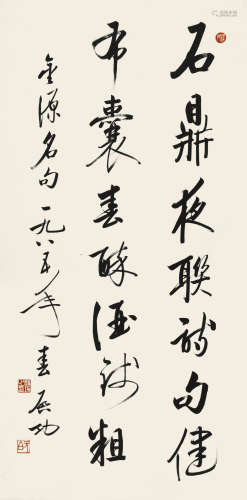 石鼎夜聯詩句健
布囊春醉酒錢粗
金源名句 一九八五年春 启功